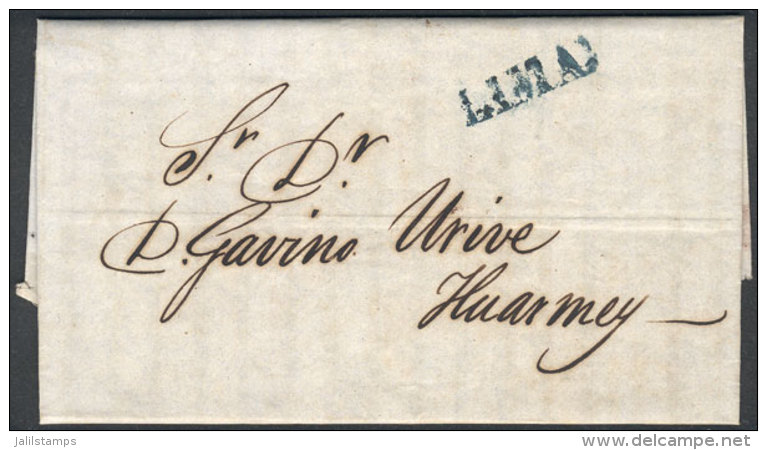 LIMA
Sr. Dr.
D. Gavino Urive
Huarmey
jalilstamps
delcampe.net